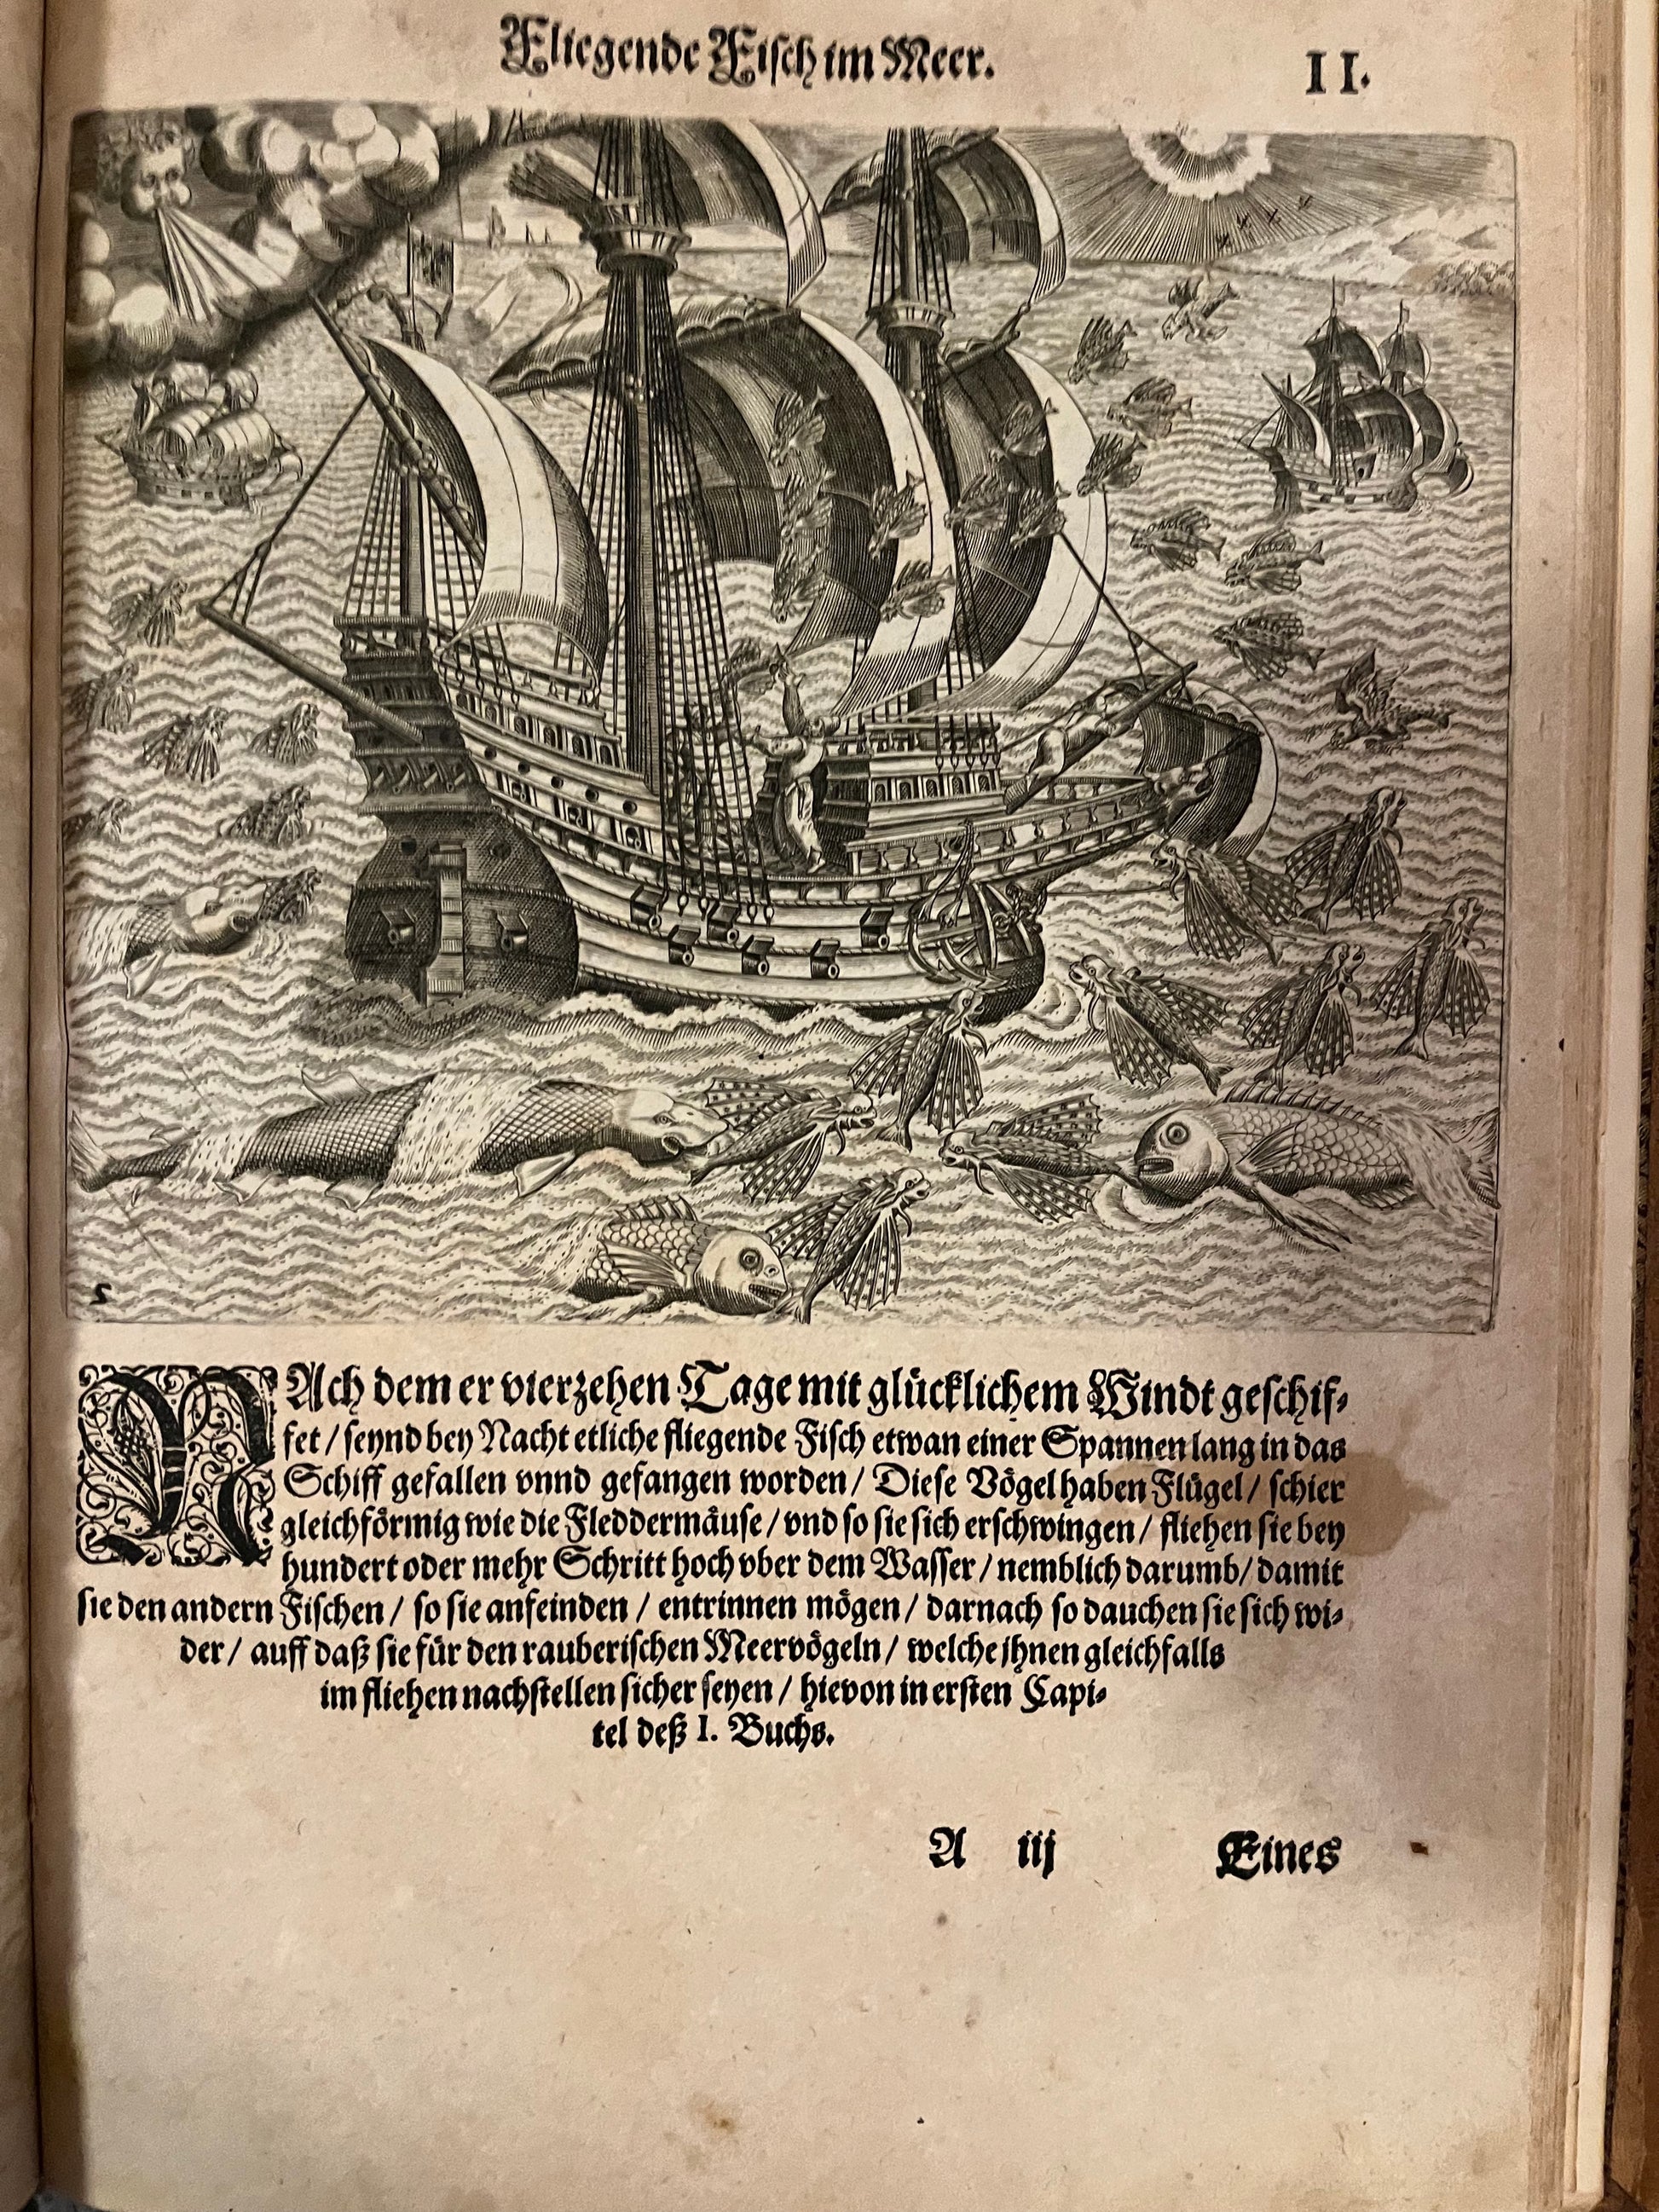 Fliegende Fisch im Meer.
II.
S
NAch dem er vierzehen Tage mit glücklichem Windt geschif-
fet / seynd bey Nacht etliche fliegende Fisch etwan einer Spannen lang in das
Schiff gefallen vnnd gefangen worden / Diese Vögel haben Flügel / schier
gleichförmig wie die Fleddermäuse / vnd so sie sich erschwingen / fliehen sie bey
hundert oder mehr Schritt hoch vber dem Wasser / nemblich darumb / damit
sie den andern Fischen / so sie anfeinden / entrinnen mögen / darnach so dauchen sie sich wi-
der / auff daß sie für den rauberischen Meervögeln / welche jhnen gleichfalls
im fliehen nachstellen sicher seyen / hievon in ersten Capi-
tel deß I. Buchs.
A iij
Eines